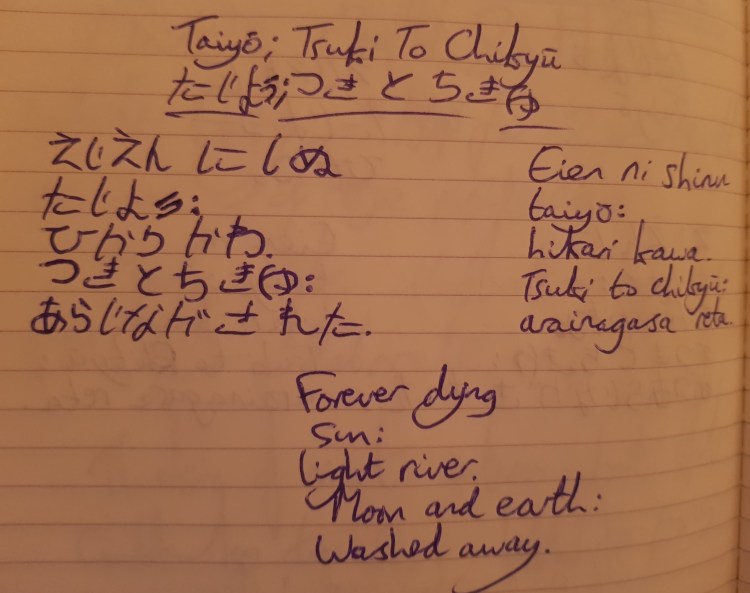 Taiyō; Tsuki To Chikyū
たじよう;つきとちきゆ
えじえん にしぬ
たじよう:
ひから かわ.
つきとちきゆ:
あらじながされた.
Eien ni shinu
taiyō:
hikari kawa.
Tsuki to chikyū:
arainagasa reta.
Forever dyng
Sun:
light river.
Moon and earth:
Washed away.